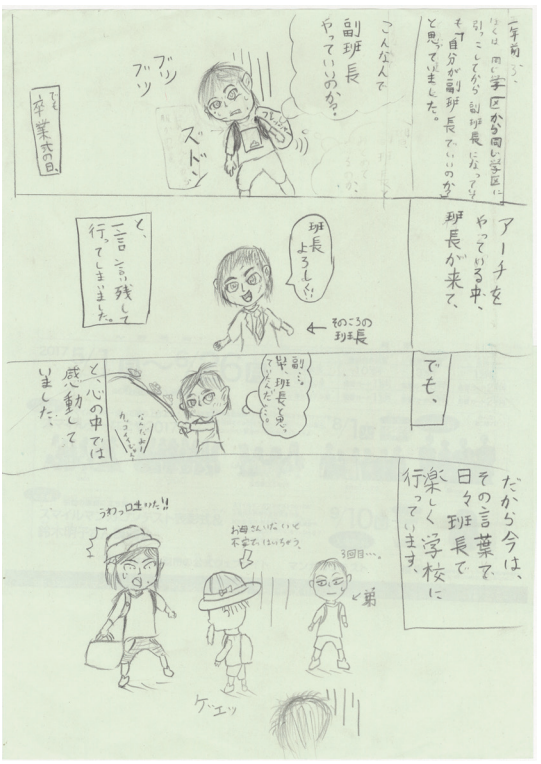 一年前、
ぼくは、同じ学区から同じ学区に
引っこしてから副班長になっても
も「自分が副班長でいいのか」
と思っていました。
こんなんで
副班長
やっていいのか?
プレッシャー
ズドン
ブツ
ブツ
でも、
卒業式の日、
アーチを
やっている中、
班長が来て、
班長
よろしく!!
そのころの
班長
と、
一言言い残して
行ってしまいました。
でも、
副…。
班長と思っ
ていんだ…。
なんだか
と、心の中では
感動して
いました、
だから今は、
その言葉で
日々班長で
楽しく学校に
行っています、
3回目…。
弟
お母さんいないと
不安ではいちゃう。
うわっ口土いた!!
ゲエッ